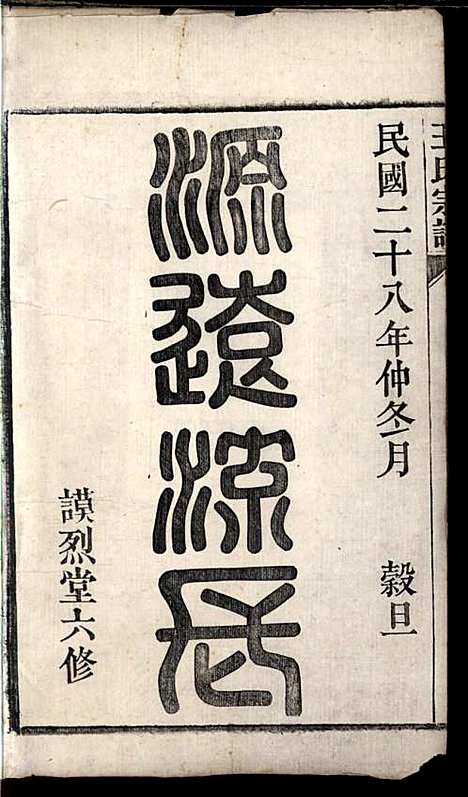 王氏宗譜
民國二十八年仲冬月 穀旦
源遠流長
謨烈堂六修